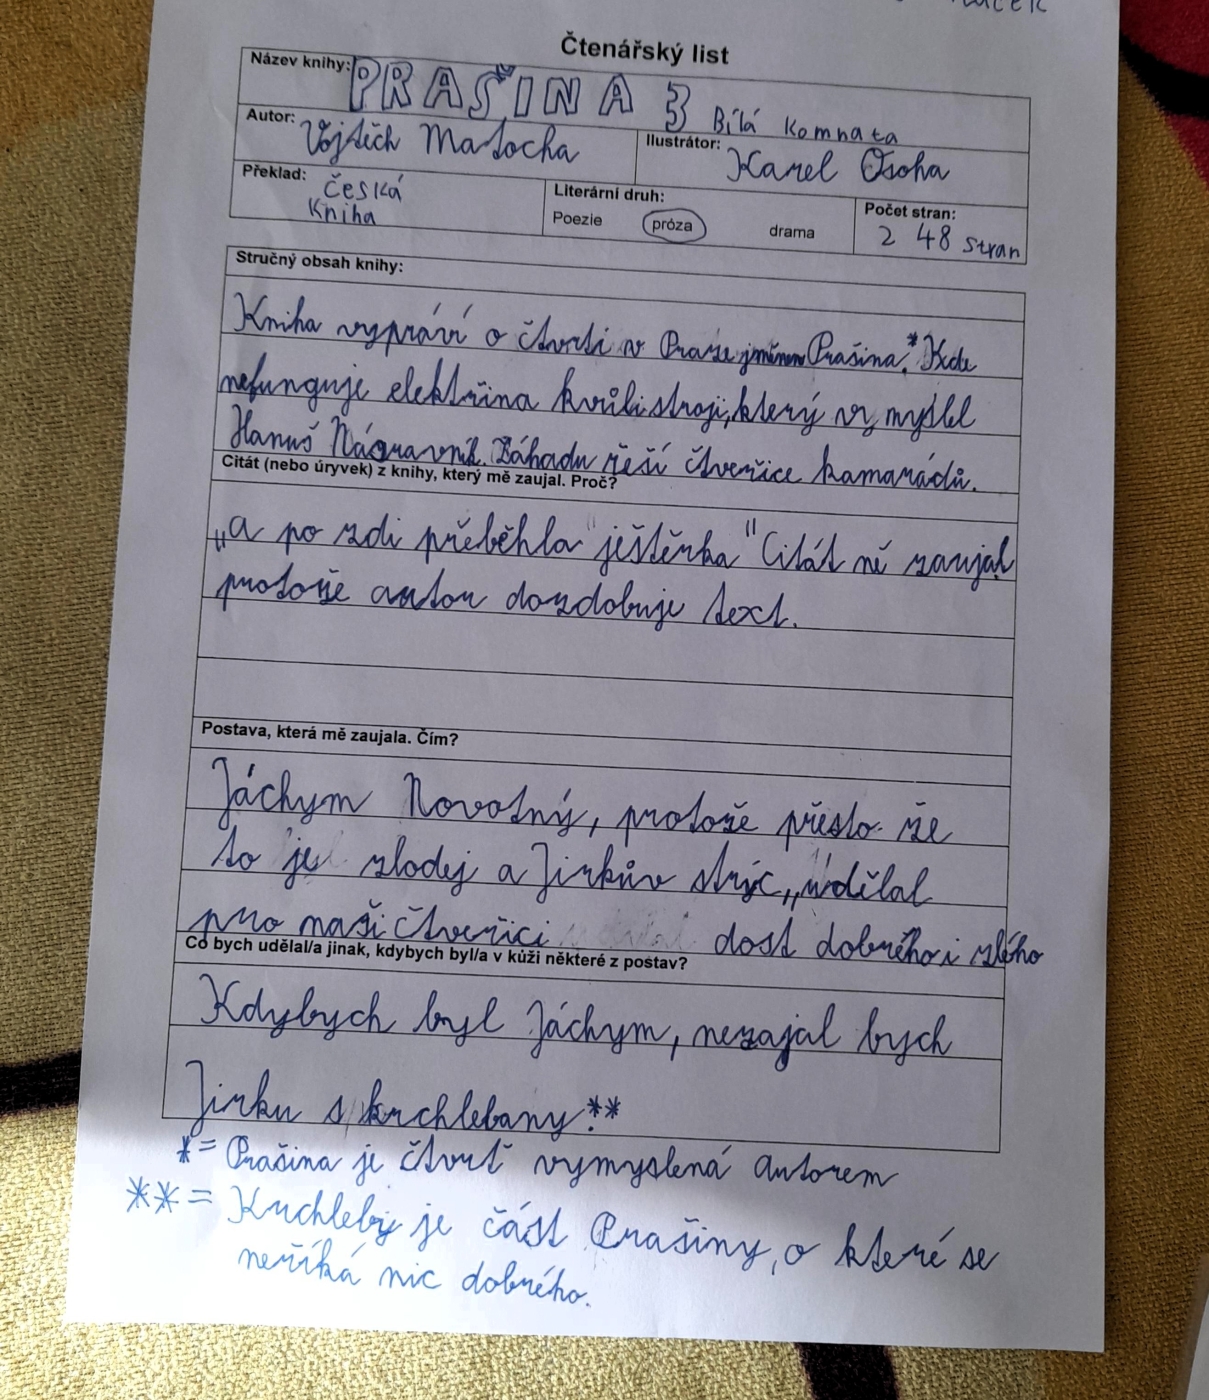 Čtenářský list
Název knihy: PRAŠINA 3 Bílá komnata
Autor: Vojtěch Matocha Ilustrátor: Karel Osoha
Překlad: česká kniha Literární druh: Poezie próza drama Počet stran: 248 stran
Stručný obsah knihy:
Kniha vypráví o čtvrti v Praze jménem Prašina.* Kde
nefunguje elektřina kvůli stroji, který vymyslel
Hanuš Nápravník. Záhadu řeší čtveřice kamarádů.
Citát (nebo úryvek) z knihy, který mě zaujal. Proč?
„a po zdi přeběhla ještěrka" Citát mě zaujal
protože autor dozdobuje text.
Postava, která mě zaujala. Čím?
Jáchym Novotný, protože přesto že
to je zloděj a Jirkův strýc, udělal
pro naši čtveřici dost dobrého i zlého
Co bych udělal/a jinak, kdybych byl/a v kůži některé z postav?
Kdybych byl Jáchym, nezajal bych
Jirku s krchlebany.**
*= Prašina je čtvrť vymyslená autorem
**= Krchleby je část Prašiny, o které se
neříká nic dobrého.